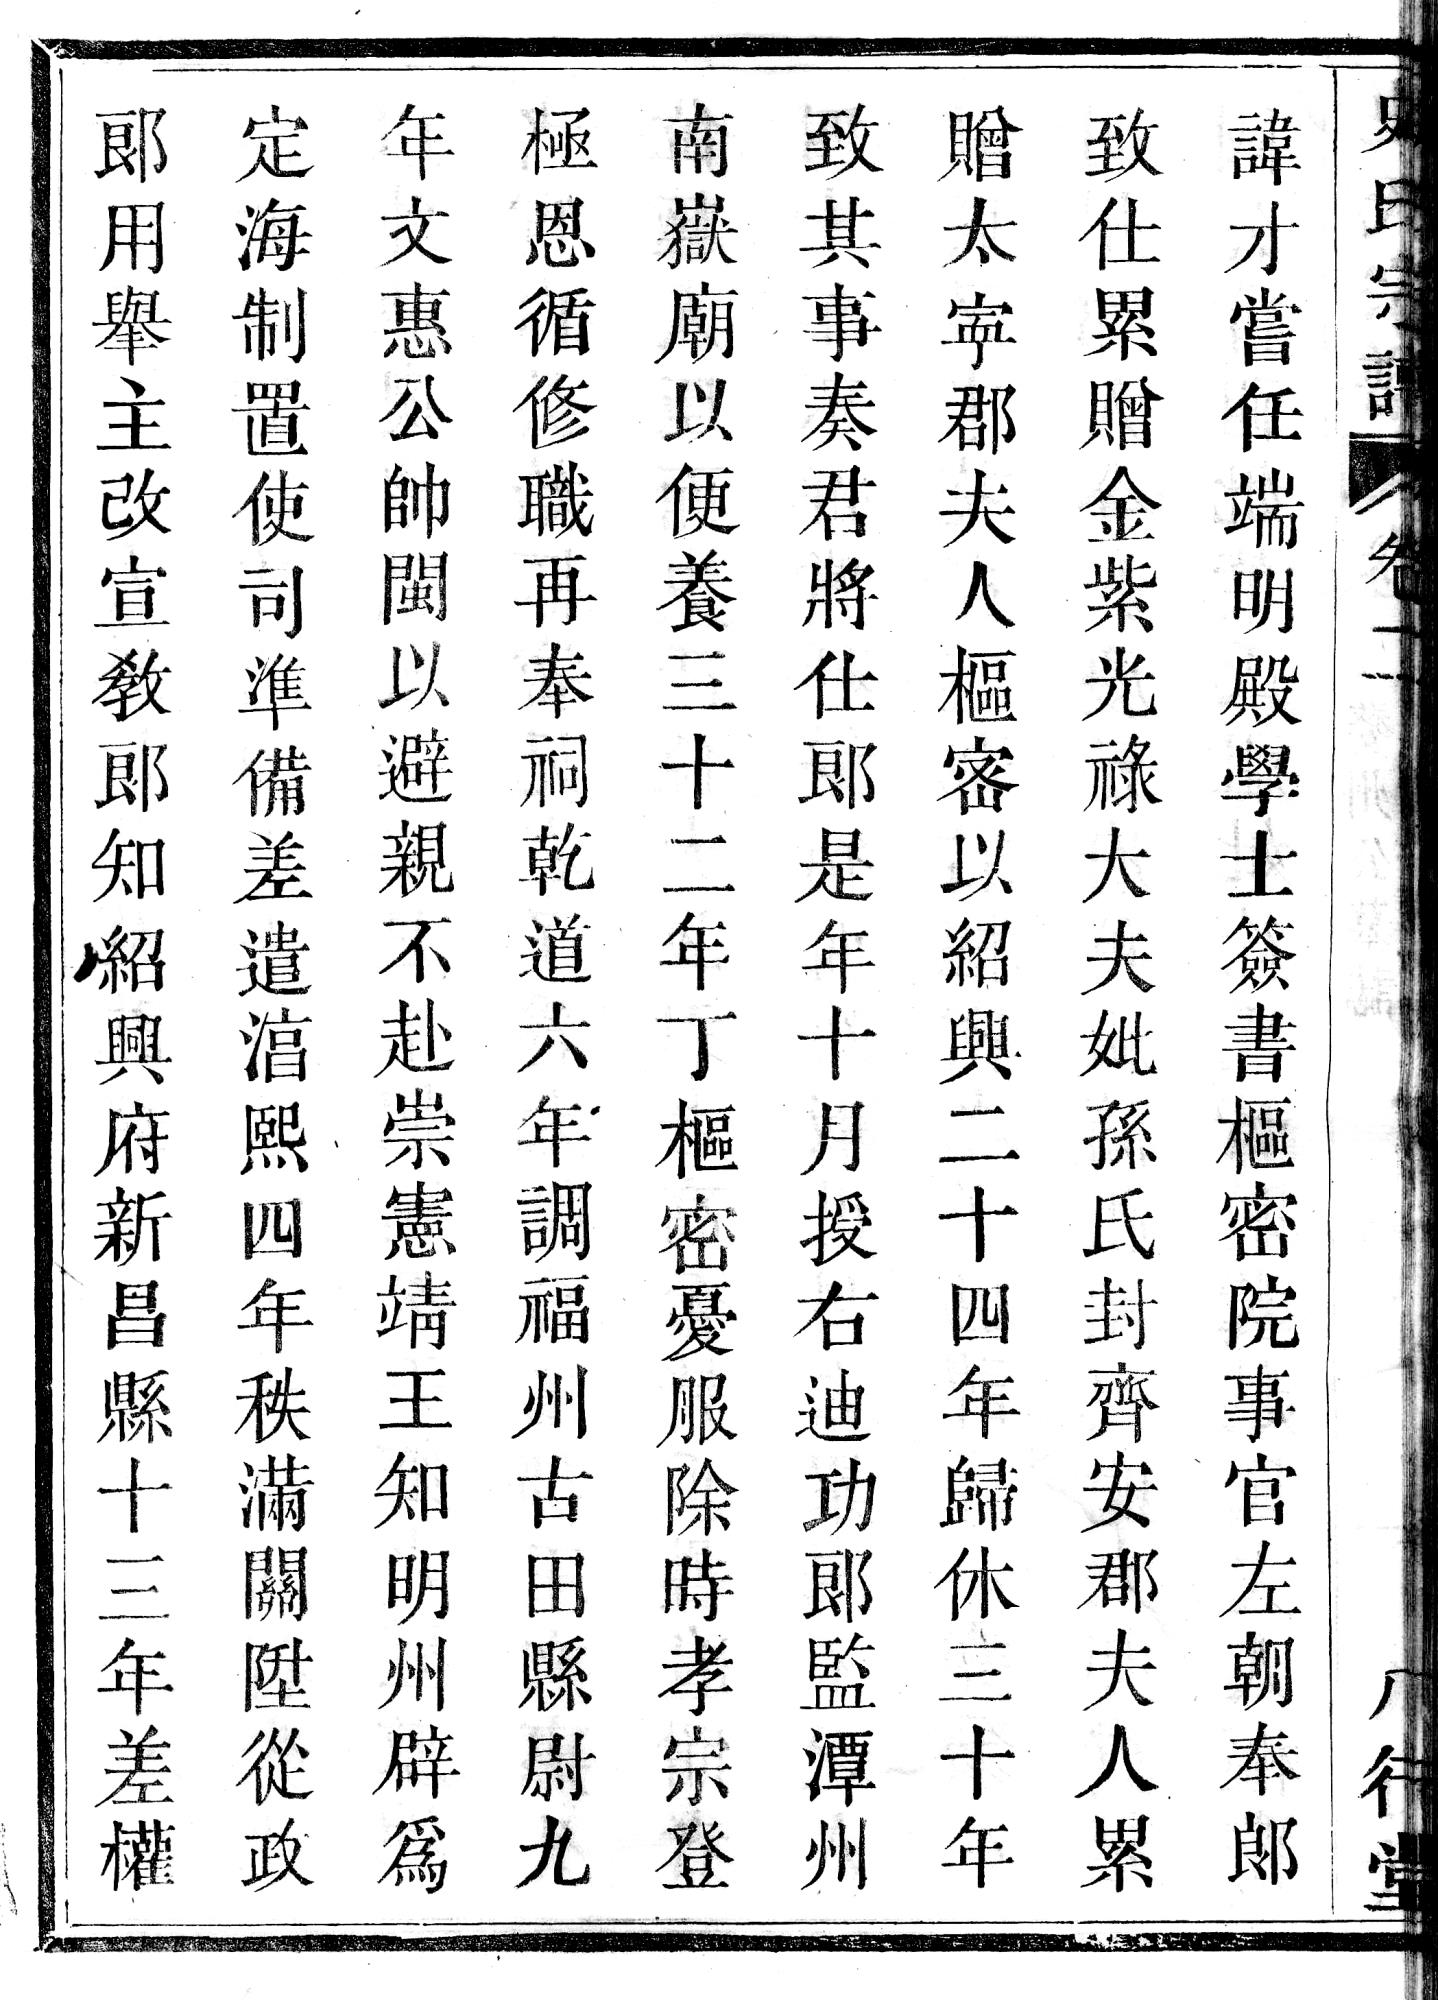 史氏宗譜 卷二 八行堂
諱才嘗任端明殿學士簽書樞密院事官左朝奉郎
致仕累贈金紫光祿大夫妣孫氏封齊安郡夫人累
贈太寧郡夫人樞密以紹興二十四年歸休三十年
致其事奏君將仕郎是年十月授右迪功郎監潭州
南嶽廟以便養三十二年丁樞密憂服除時孝宗登
極恩循修職再奉祠乾道六年調福州古田縣尉九
年文惠公帥閩以避親不赴崇憲靖王知明州辟爲
定海制置使司準備差遣湻熙四年秩滿關陞從政
郎用舉主改宣教郎知紹興府新昌縣十三年差權